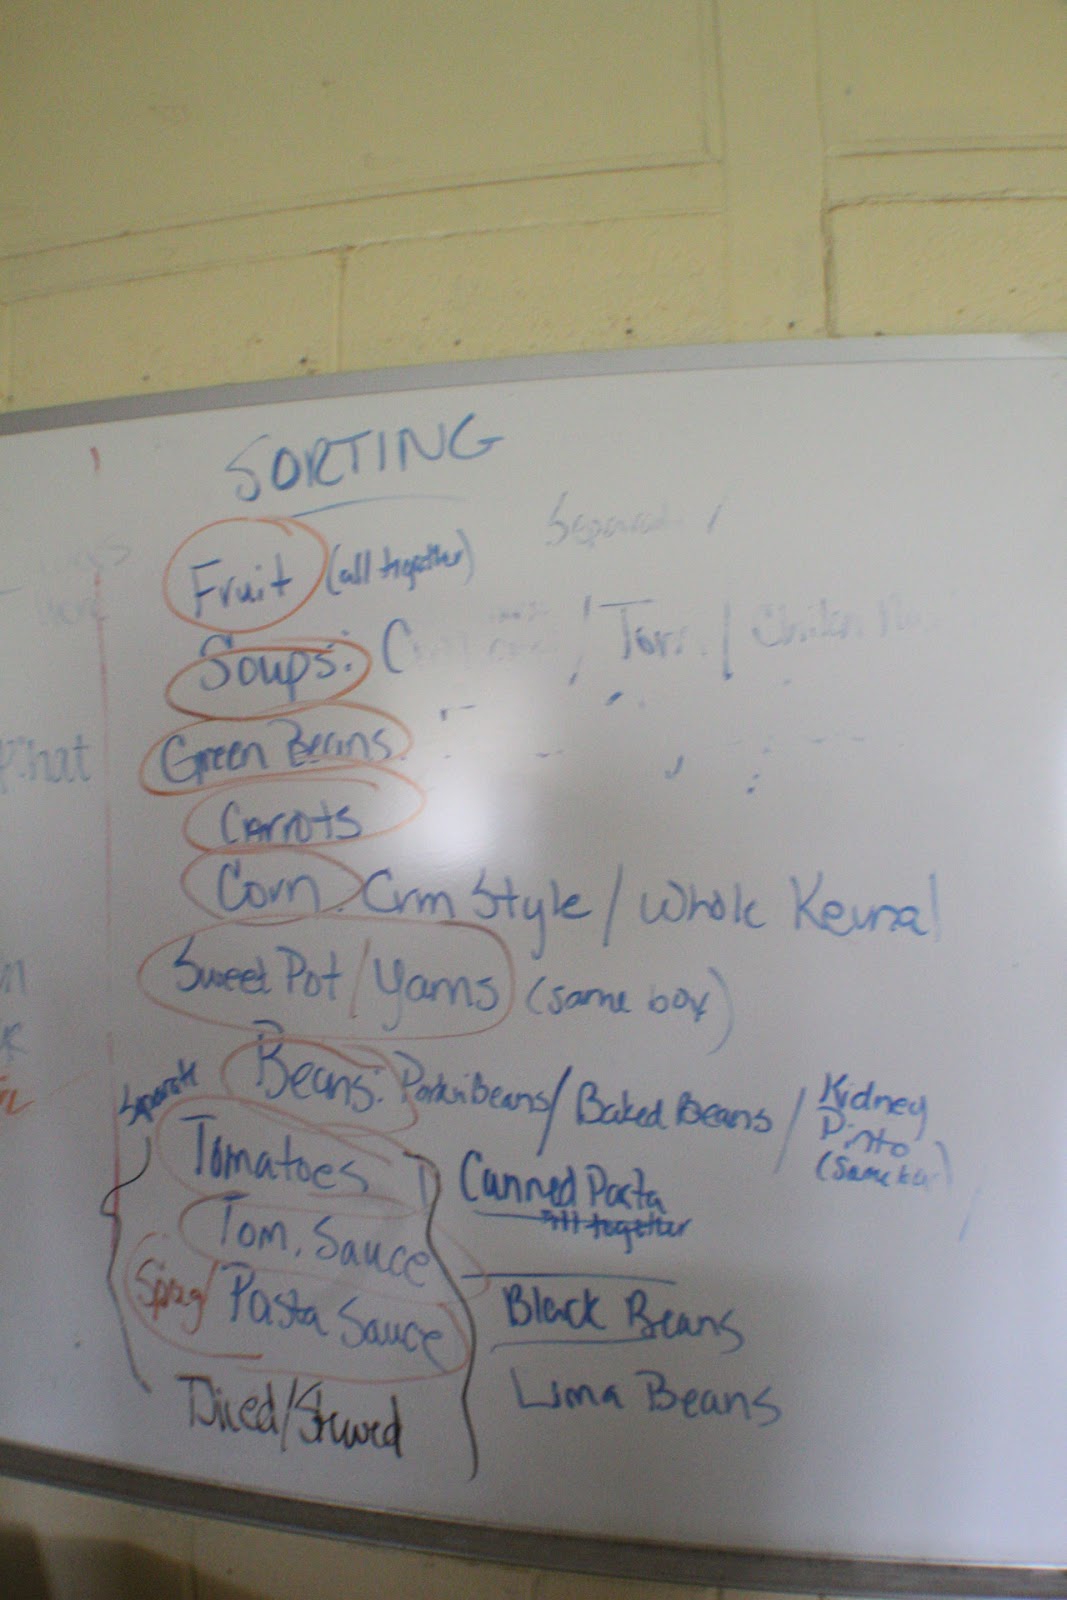 SORTING
Fruit (all together)
Soups: / Tom. /
Green Beans
Carrots
Corn. Crm Style / Whole Kernal
Sweet Pot / Yams (same box)
Separate
Beans: Pork n Beans / Baked Beans / Kidney
Pinto
Tomatoes
Canned Pasta
all together
Tom. Sauce
Spag / Pasta Sauce
Black Beans
Lima Beans
Diced/Stewed